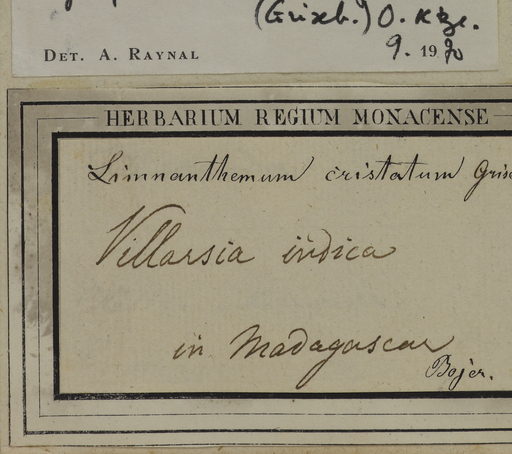 (Griseb.) O. Ktze.
DET. A. RAYNAL 9. 1970
HERBARIUM REGIUM MONACENSE
Limnanthemum cristatum Gris
Villarsia indica
in Madagascar
Bojer.